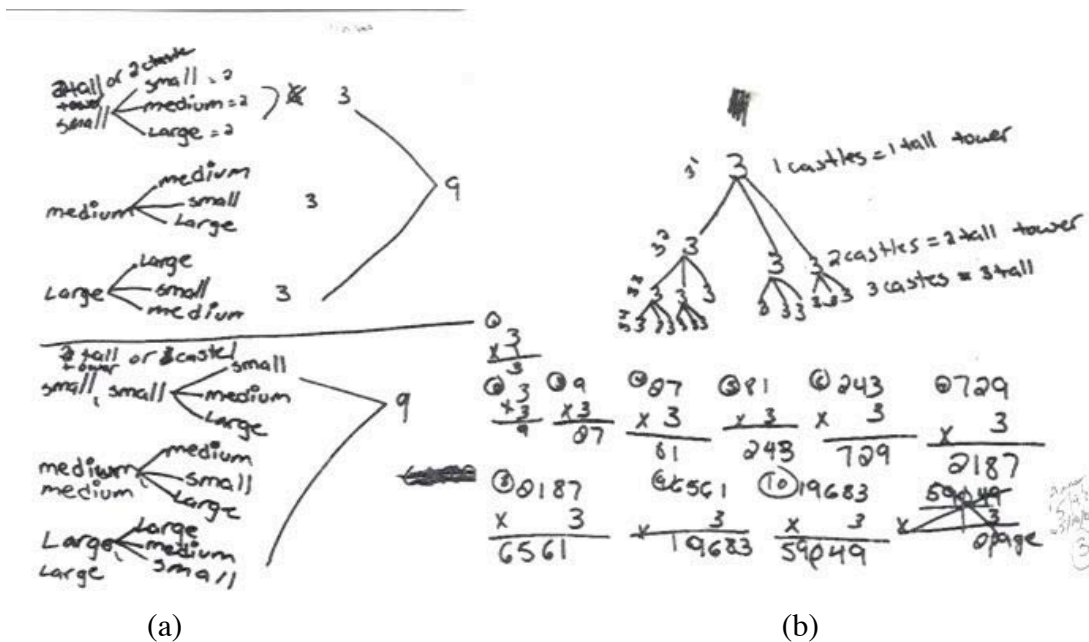 2 tall or 2 castle
tower
small
small = 2
medium = 2
Large = 2
3
medium
medium
small
Large
3
9
Large
Large
small
medium
3
tall or castel
tower
small, small
small
medium
Large
9
medium
medium
medium
small
Large
Large,
Large
Large
medium
small
3¹ 3 1 castles = 1 tall tower
3² 3 3 3 2 castles = 2 tall tower
3³ 3 3 3 3 3 3 3 3 castes = 3 tall
3⁴ 3 3 3 3 3 3
① 3
x 1
3
② 3
x 3
9
③ 9
x 3
27
④ 27
x 3
81
⑤ 81
x 3
243
⑥ 243
x 3
729
⑦ 729
x 3
2187
⑧ 2187
x 3
6561
⑨ 6561
x 3
19683
⑩ 19683
x 3
59049
59049
x 3
page
3
(a)
(b)